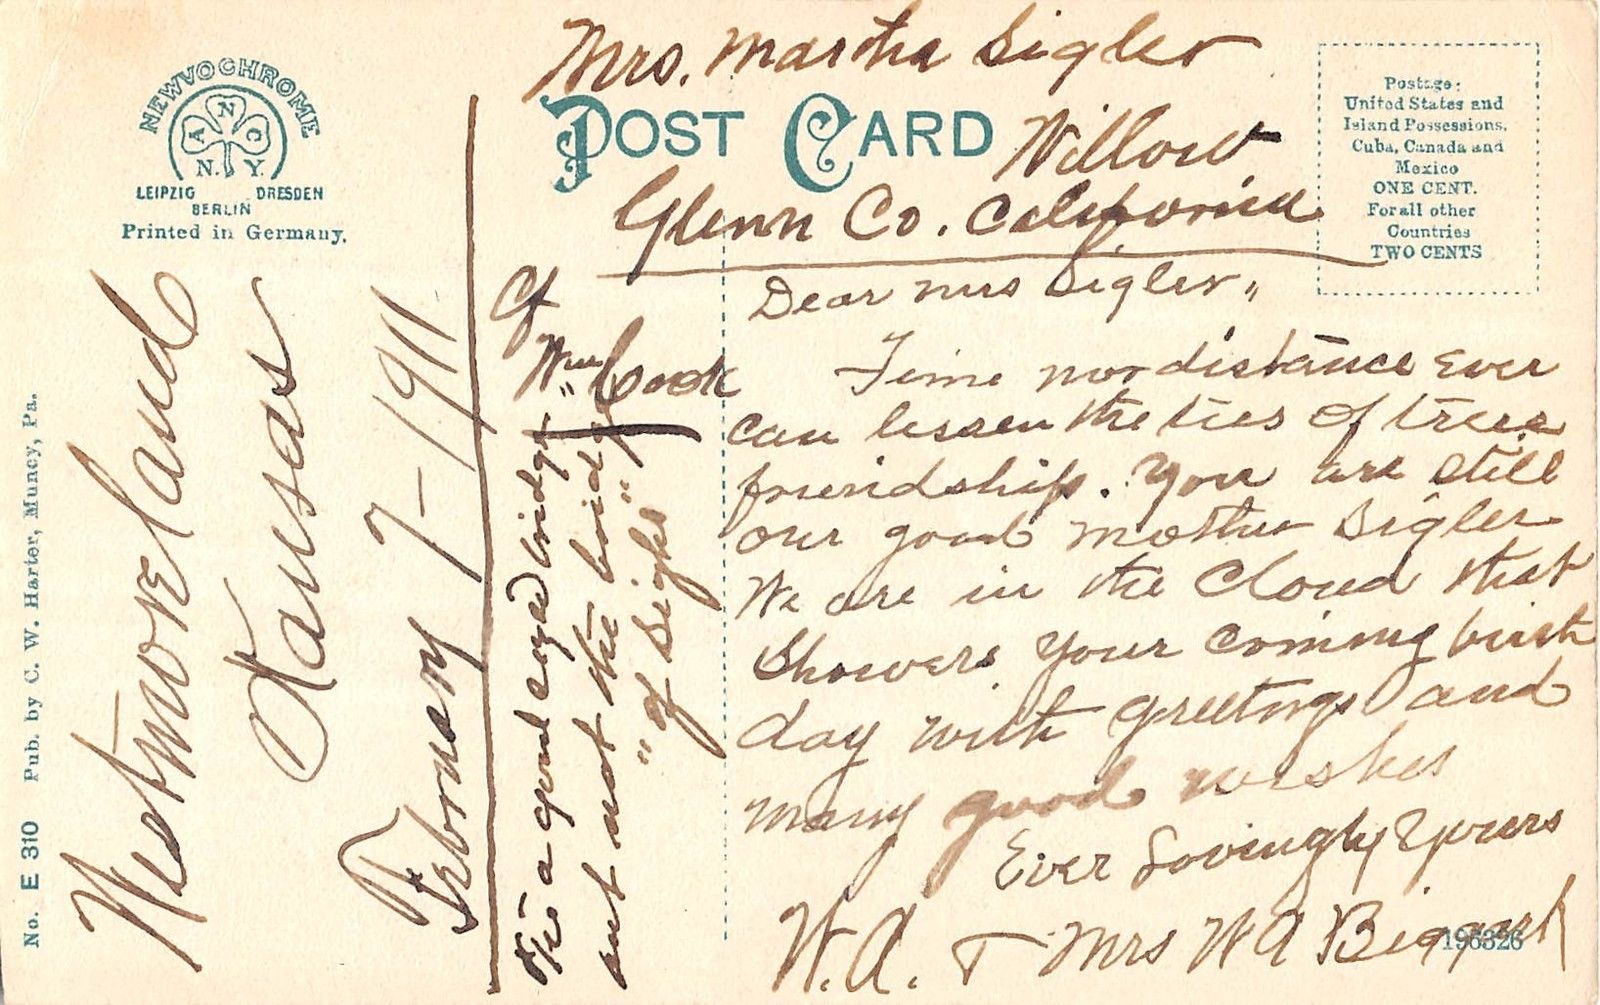 NEWVOCHROME
A N C
N. Y.
LEIPZIG DRESDEN
BERLIN
Printed in Germany.
No. E 310 Pub. by C. W. Harter, Muncy, Pa.
POST CARD
Postage:
United States and
Island Possessions,
Cuba, Canada and
Mexico
ONE CENT.
For all other
Countries
TWO CENTS
Mrs. Martha Sigler
Willow
Glenn Co. California
Wm Cook
Westmoreland
Kansas
February 7-1911
Dear Mrs Sigler,,
Time nor distance Ever
can lessen the ties of true
friendship. You are still
our good mother Sigler
We are in the Cloud that
Showers your coming birth
day with greetings and
many good wishes
Ever Lovingly Yours
W. A. & Mrs W A
a good eyed bridge
out not the
"of Sight"
196326